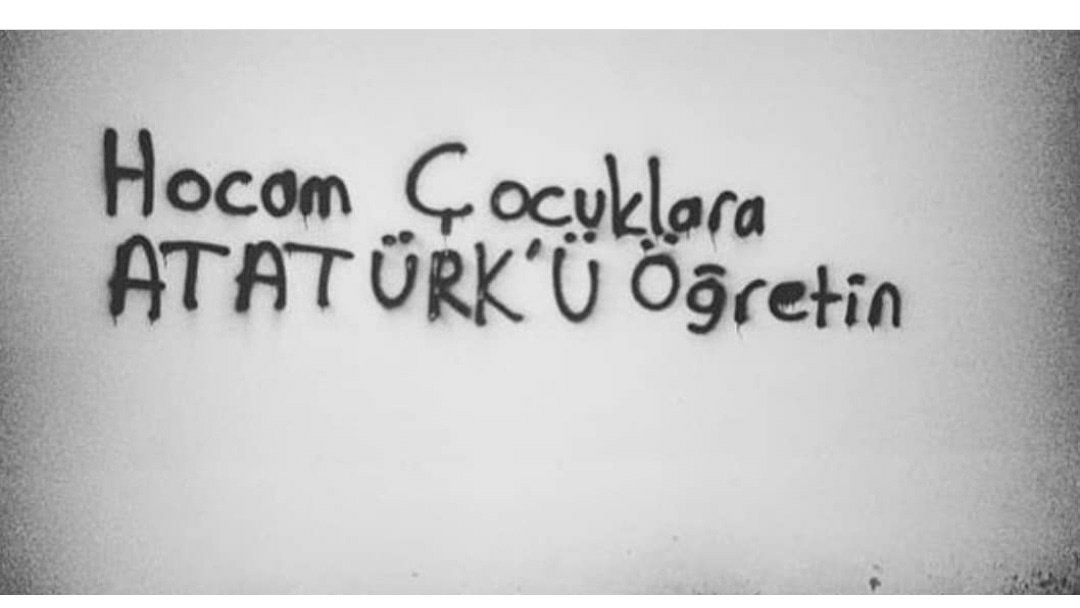 Hocam Çocuklara
ATATÜRK'Ü Öğretin